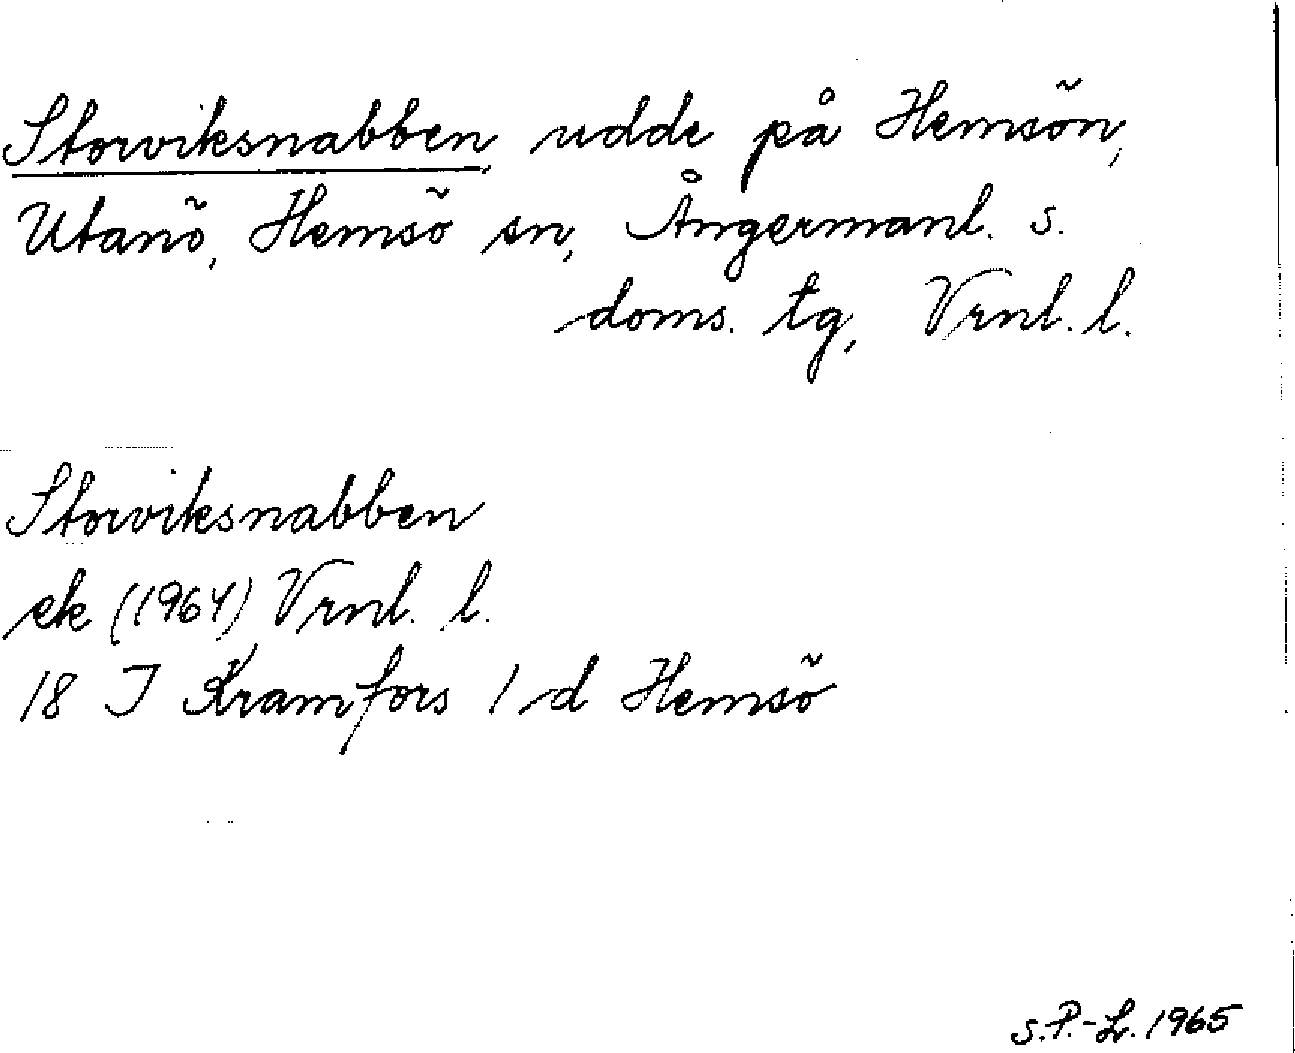 Storviksnabben, udde på Hemsön,
Utanö, Hemsö sn, Ångermanl. s.
doms. tg, Vrnl. l.
Storviksnabben
ek (1964) Vrnl. l.
18 I Kramfors 1 d Hemsö
S.P.-L. 1965